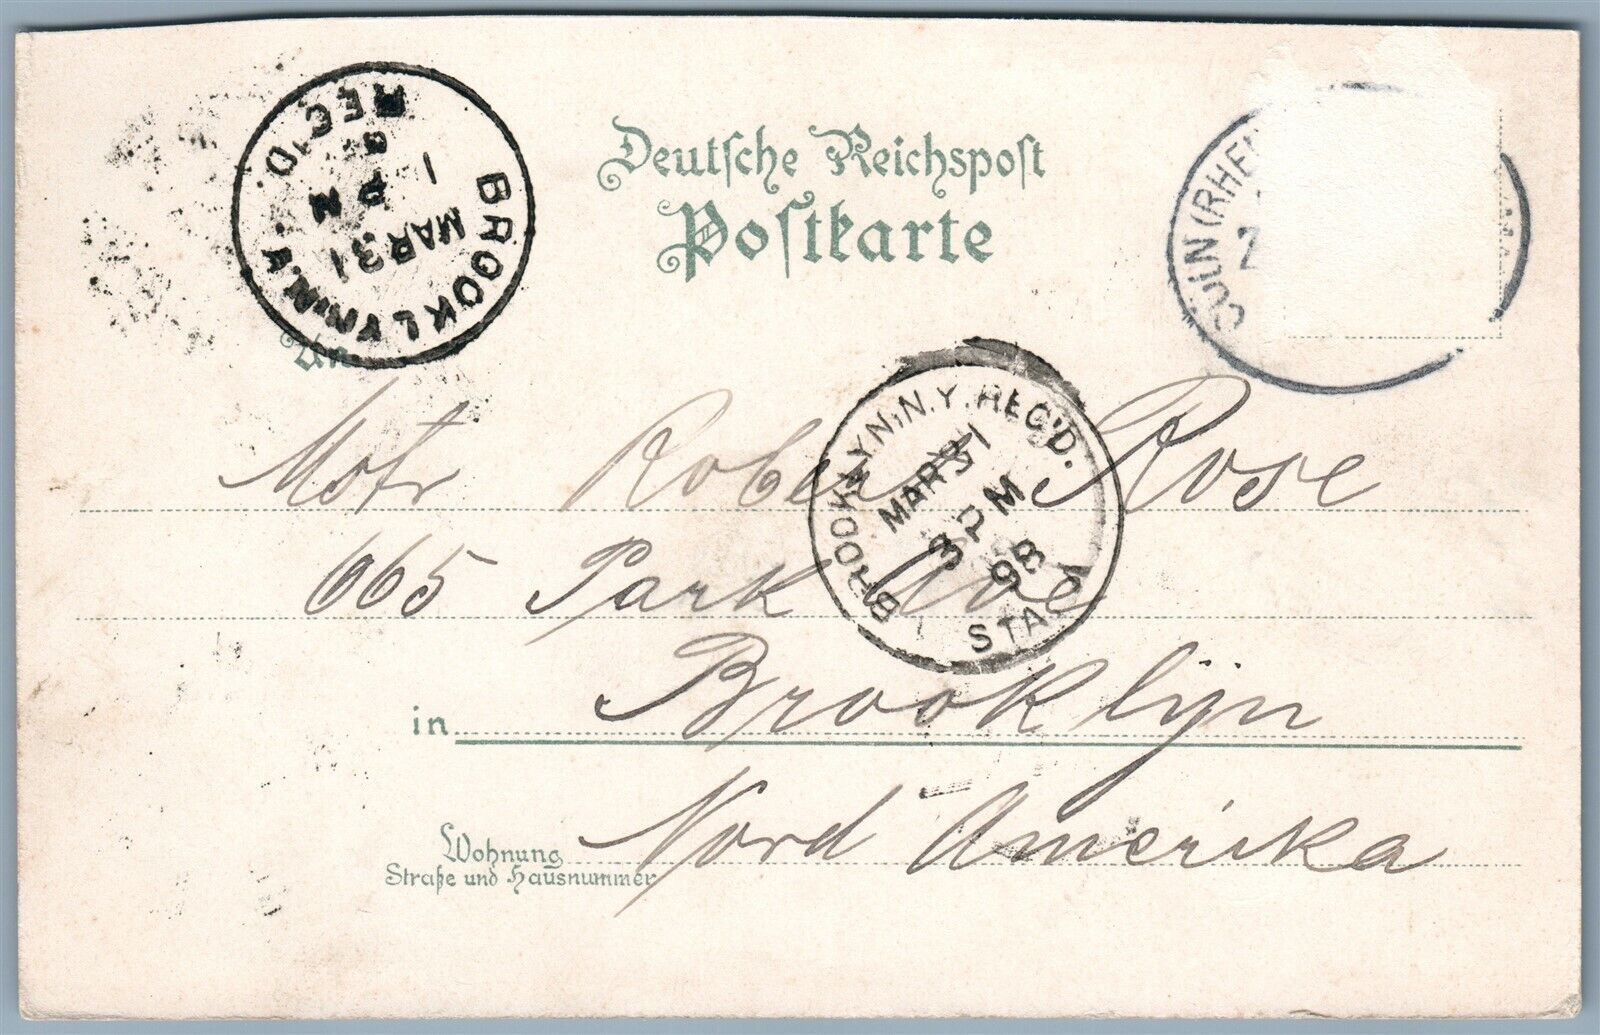 BROOKLYN, N.Y. REC'D.
MAR 31
1
Deutsche Reichspost
Postkarte
CÖLN (RHEIN
An
BROOKLYN, N.Y. REC'D.
MAR 31
3 PM
98
STA.
Mstr Robert Rose
665 Park Ave
in Brooklyn
Wohnung
Straße und Hausnummer
Nord Amerika